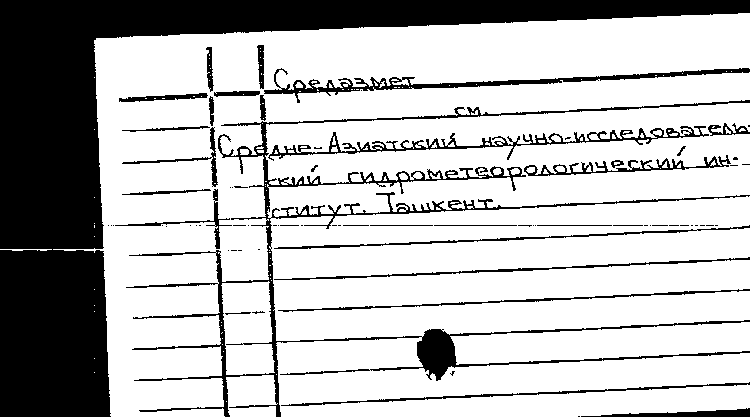 Средазмет
см.
Средне-Азиатский научно-исследователь
ский гидрометеорологический ин-
ститут. Ташкент.